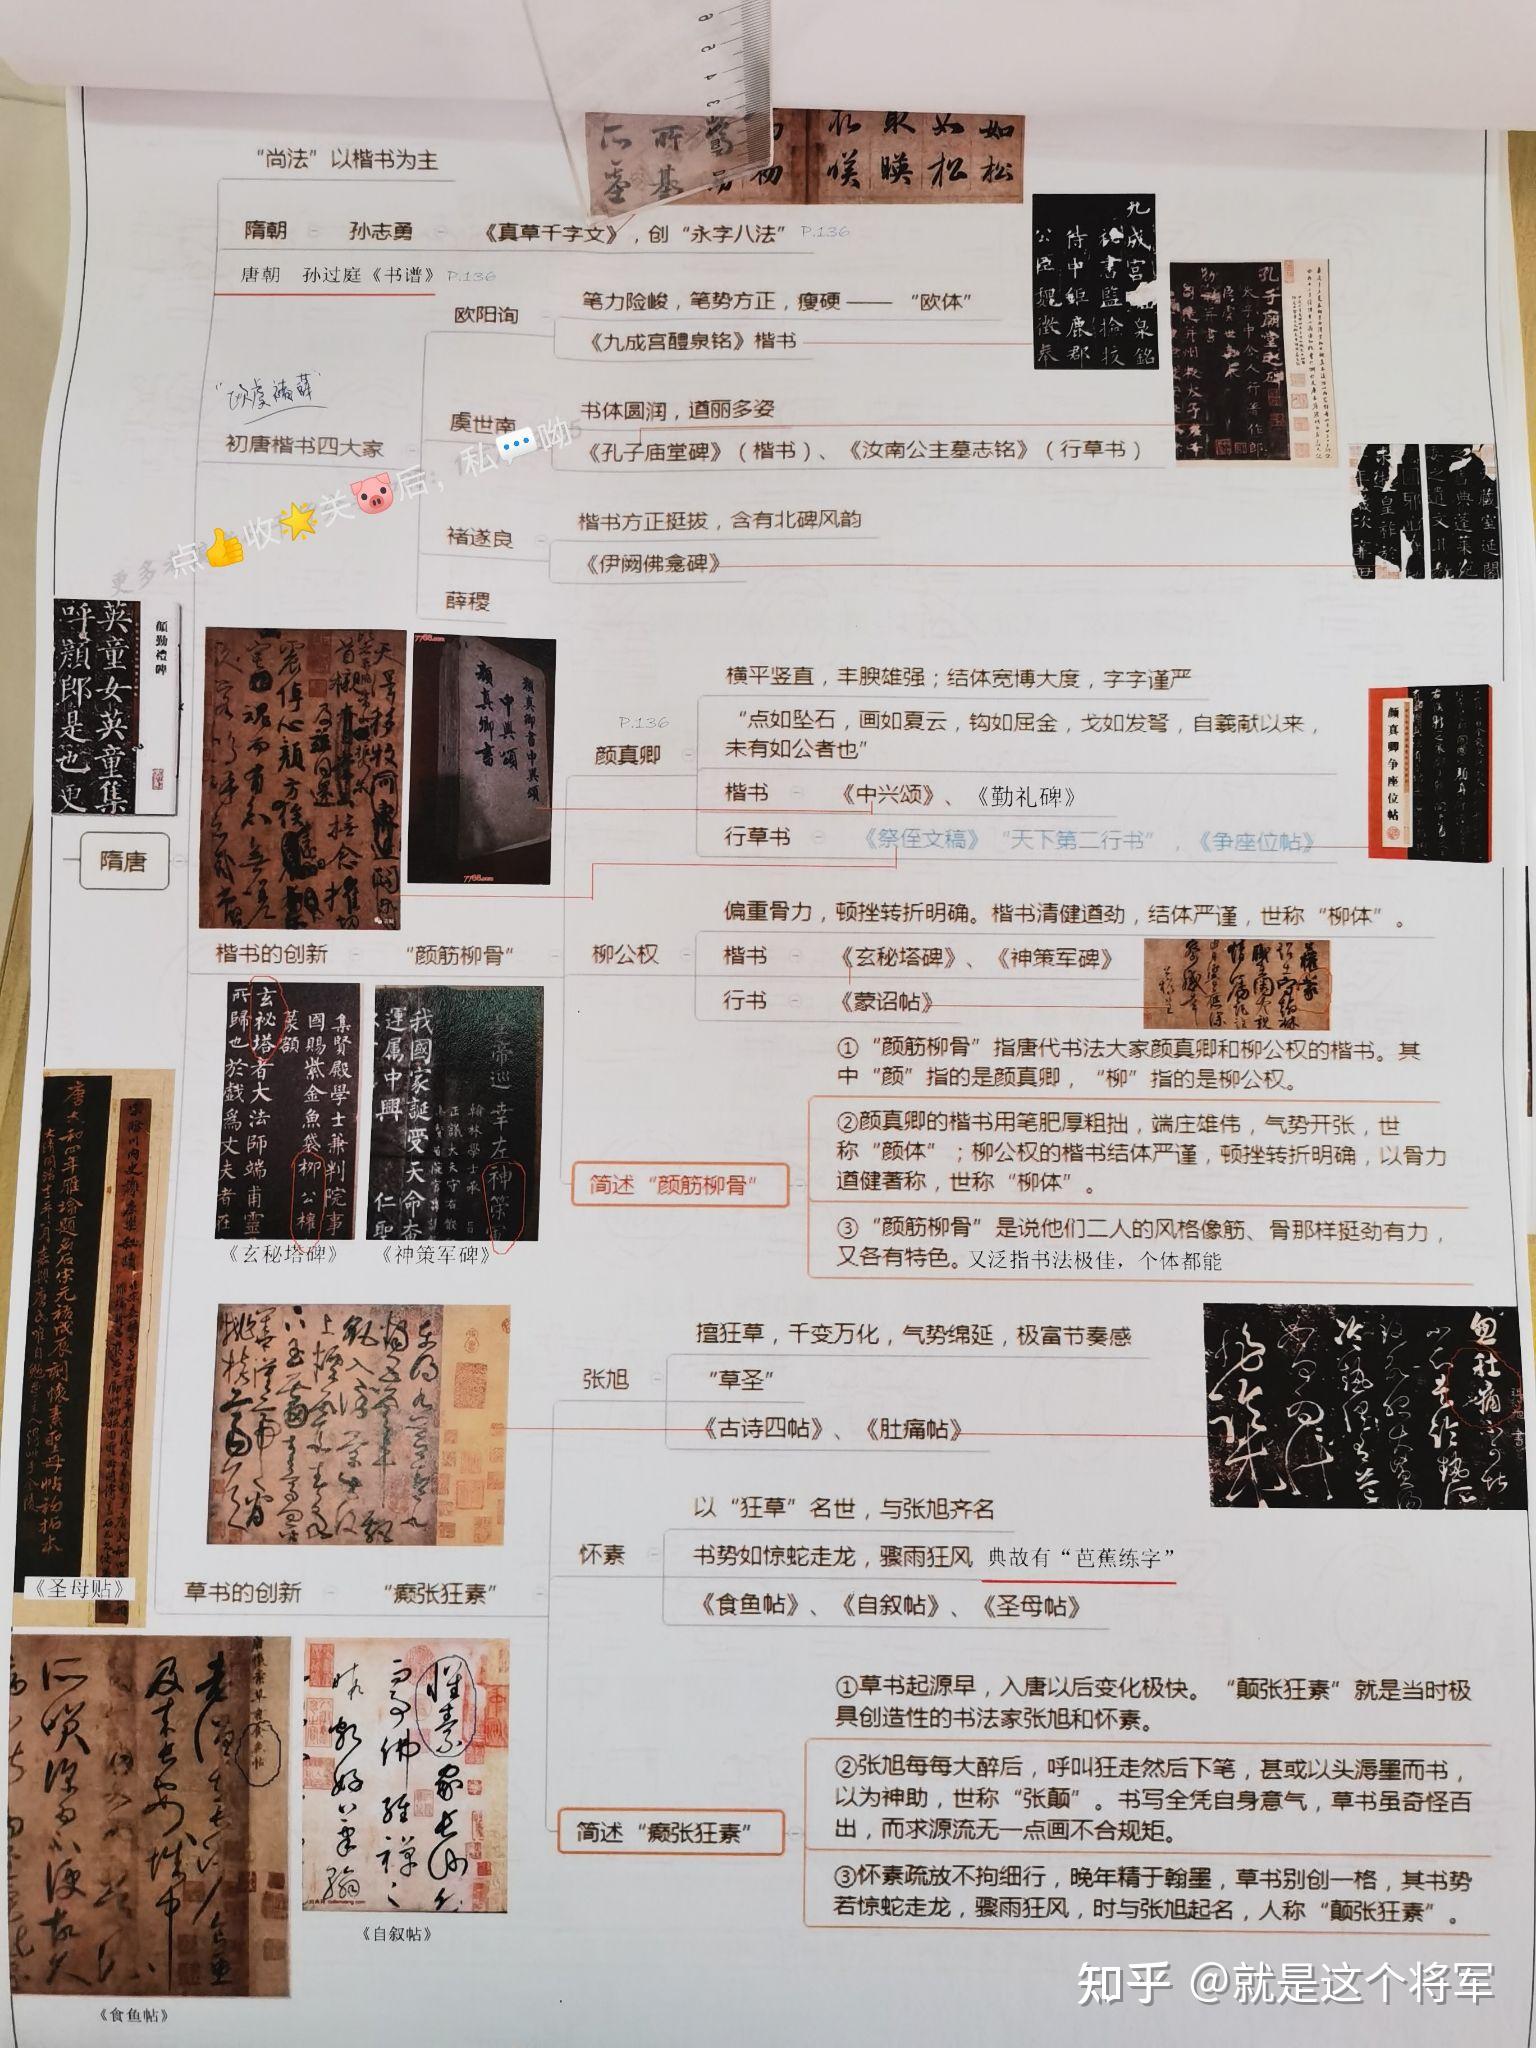 “尚法”以楷书为主
隋朝 孙志勇 《真草千字文》，创“永字八法” P.136
唐朝 孙过庭《书谱》 P.136
欧阳询
笔力险峻，笔势方正，瘦硬 —— “欧体”
《九成宫醴泉铭》楷书
“欧虞褚薛”
初唐楷书四大家
虞世南
书体圆润，遒丽多姿
《孔子庙堂碑》（楷书）、《汝南公主墓志铭》（行草书）
点👍收🌟关🐷后，私💬呦
褚遂良
楷书方正挺拔，含有北碑风韵
《伊阙佛龛碑》
薛稷
更多
顏勤禮碑
英童女英童集
呼顏郎是也更
隋唐
7788.com
顏真卿書中興頌
中興頌
顏真卿書
7788.com
P.136
颜真卿
横平竖直，丰腴雄强；结体宽博大度，字字谨严
“点如坠石，画如夏云，钩如屈金，戈如发弩，自義献以来，
未有如公者也”
楷书 《中兴颂》、《勤礼碑》
行草书 《祭侄文稿》“天下第二行书”，《争座位帖》
颜真卿争座位帖
楷书的创新 “颜筋柳骨”
柳公权
偏重骨力，顿挫转折明确。楷书清健遒劲，结体严谨，世称“柳体”。
楷书 《玄秘塔碑》、《神策军碑》
行书 《蒙诏帖》
集賢殿學士兼判院事
國賜紫金魚袋柳公權
篆額
玄祕塔者大法師端甫靈
所歸也於戲為丈夫者在
皇帝巡幸左神策軍
我國家誕受天命
運属中興 仁聖
《玄秘塔碑》 《神策军碑》
简述“颜筋柳骨”
①“颜筋柳骨”指唐代书法大家颜真卿和柳公权的楷书。其
中“颜”指的是颜真卿，“柳”指的是柳公权。
②颜真卿的楷书用笔肥厚粗拙，端庄雄伟，气势开张，世
称“颜体”；柳公权的楷书结体严谨，顿挫转折明确，以骨力
遒健著称，世称“柳体”。
③“颜筋柳骨”是说他们二人的风格像筋、骨那样挺劲有力，
又各有特色。又泛指书法极佳，个体都能
张旭
擅狂草，千变万化，气势绵延，极富节奏感
“草圣”
《古诗四帖》、《肚痛帖》
怀素
以“狂草”名世，与张旭齐名
书势如惊蛇走龙，骤雨狂风 典故有“芭蕉练字”
《食鱼帖》、《自叙帖》、《圣母帖》
《圣母贴》
草书的创新 “癫张狂素”
简述“癫张狂素”
①草书起源早，入唐以后变化极快。“颠张狂素”就是当时极
具创造性的书法家张旭和怀素。
②张旭每每大醉后，呼叫狂走然后下笔，甚或以头溽墨而书，
以为神助，世称“张颠”。书写全凭自身意气，草书虽奇怪百
出，而求源流无一点画不合规矩。
③怀素疏放不拘细行，晚年精于翰墨，草书别创一格，其书势
若惊蛇走龙，骤雨狂风，时与张旭起名，人称“颠张狂素”。
《自叙帖》
《食鱼帖》
知乎 @就是这个将军